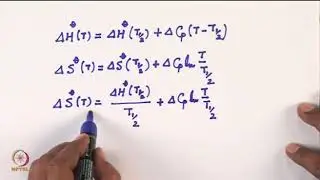 ΔH°(T) = ΔH°(T1/2) + ΔCp(T-T1/2)
ΔS°(T) = ΔS°(T1/2) + ΔCp ln T/T1/2
ΔS°(T) = ΔH°(T1/2)/T1/2 + ΔCp ln T/T1/2
NPTEL